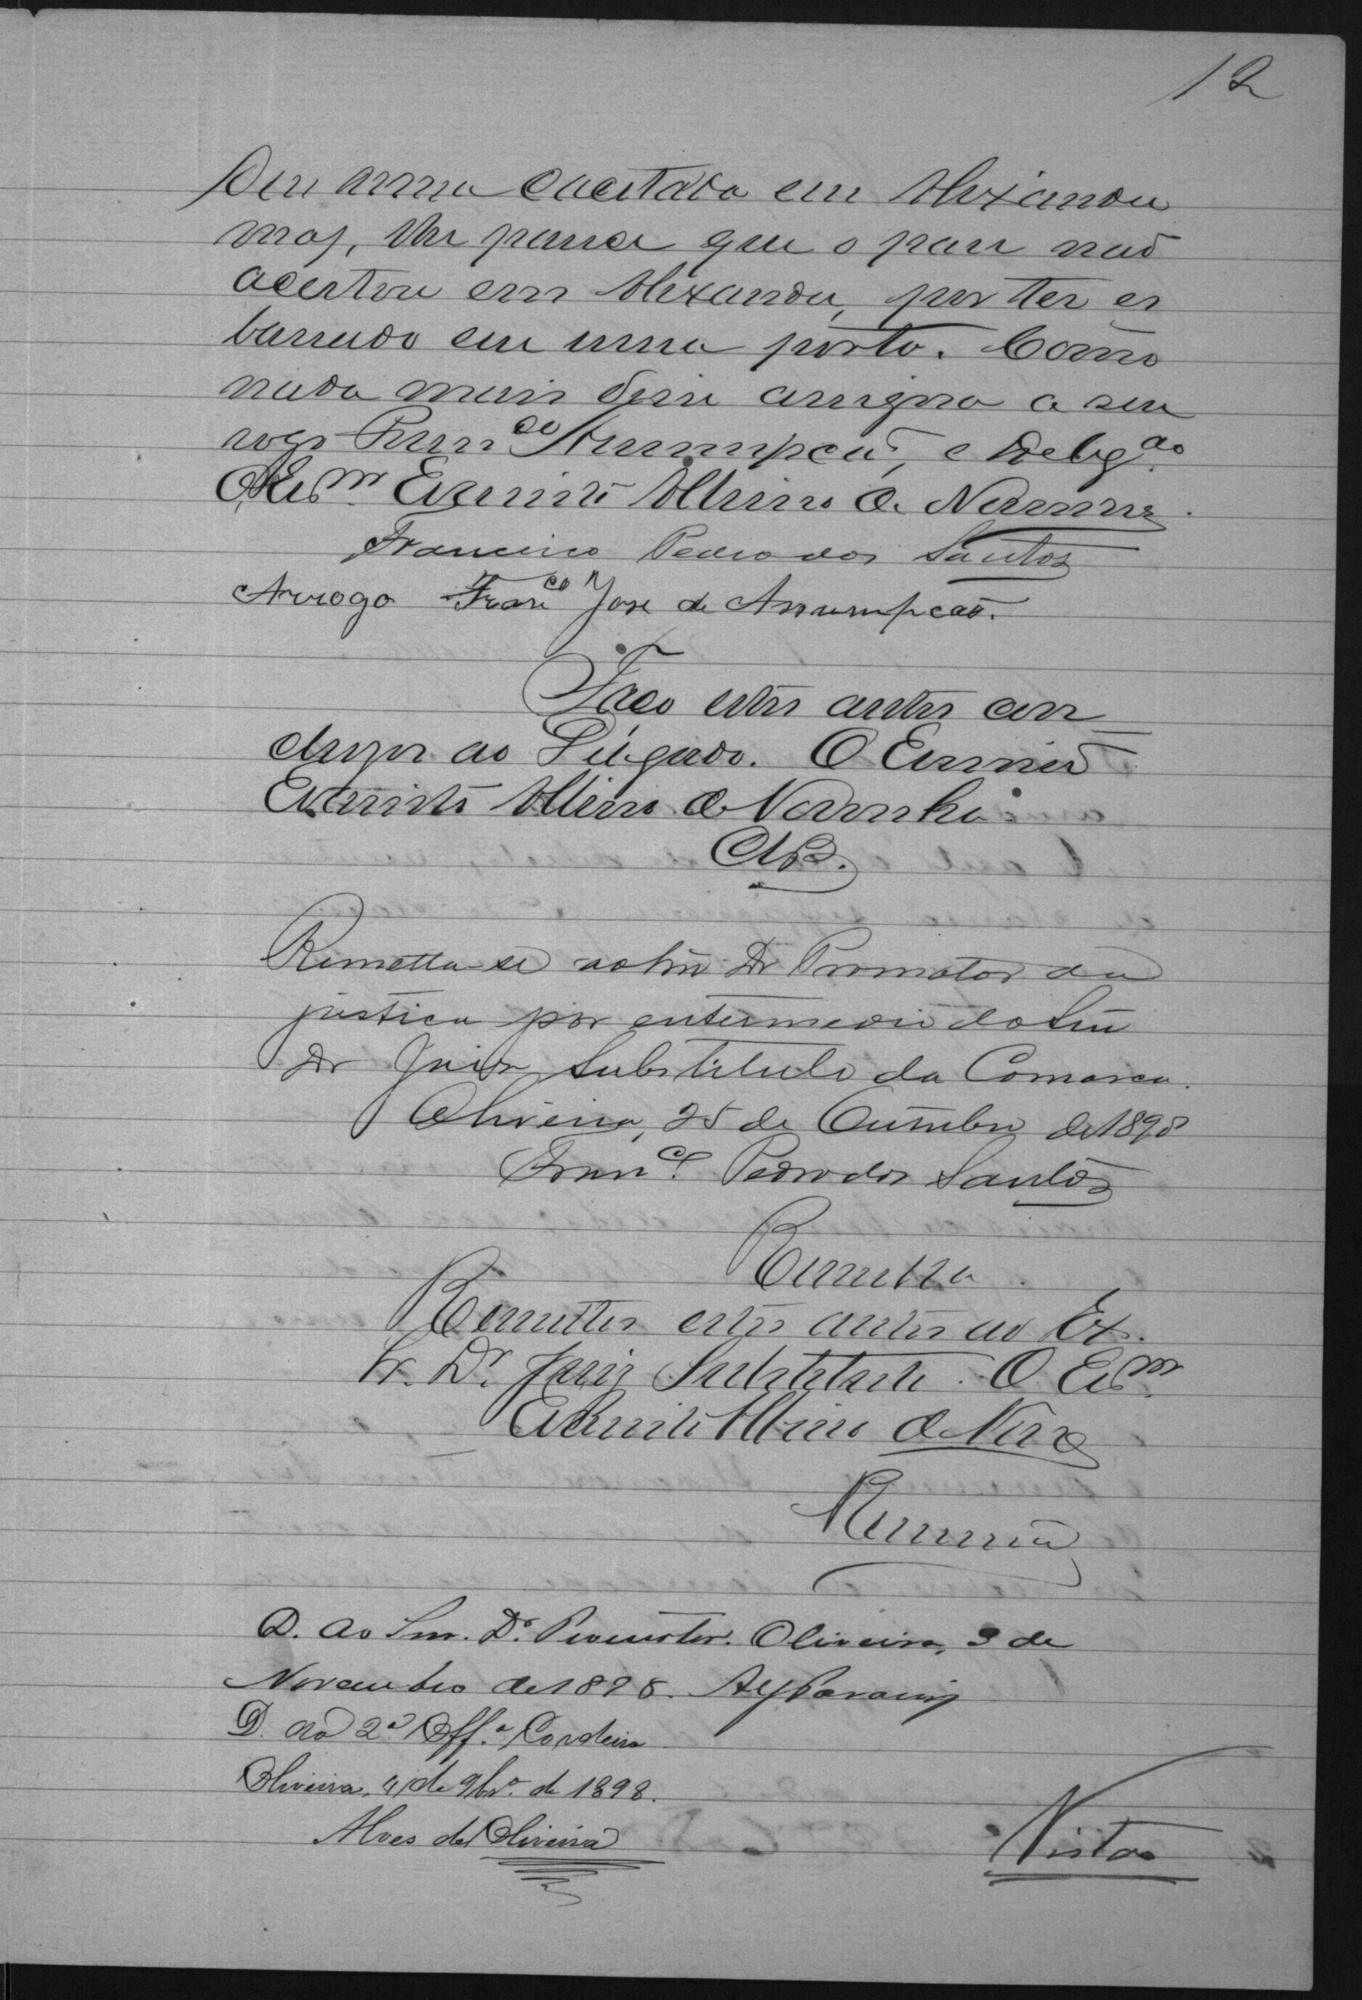 12
Deu uma cacetada em Alexandre
mas, lhe parece que o pau não
acertou em Alexandre, por ter es
barrado em uma porta. Como
nada mais disse assigna a seu
rogo Franco Assumpção, e Delegdo
Evaristo Albino de Noronha.
Francisco Pedro dos Santos
Arrogo Franco Jose de Assumpcão.
Faço estes autos con
clusos ao Delegado. O Escrivão
Evaristo Albino de Noronha.
Cls.
Remetta-se ao Snr Dr Promotor da
justica por entermedio do Snr
Dr Juiz Substituto da Comarca.
Oliveira, 25 de Outubro de 1898
Franco Pedro dos Santos
Remessa.
Remetto estes autos ao Ex.
Sr. Dr. Juiz Substituto. O Escm
Evaristo Albino de Nora
D. ao Snr. Dr. Promotor. Oliveira, 3 de
Novembro de 1898.
D. ao 2o Offo Cordeiro
Oliveira, 4 de 9bro de 1898.
Alves de Oliveira
Vista